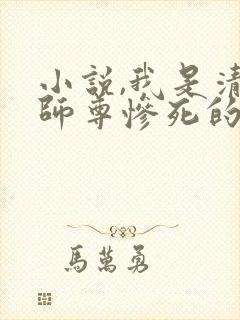 小説,我是清
師尊慘死的
馬萬勇